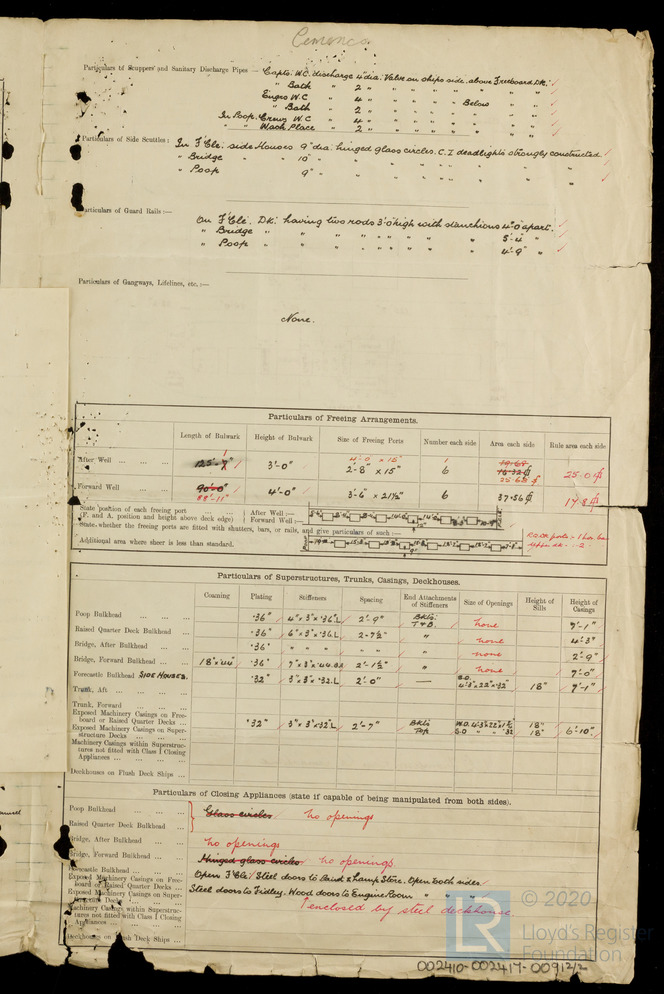 Particulars of Scuppers and Sanitary Discharge Pipes — Capts. W.C. discharge 4" dia: Valve on ships side above Freeboard Dk.
" Bath " 2" " " " " " " "
Engrs W.C " 4" " " " " Below " "
" Bath " 2" " " " " " " "
In Poop. Crews W.C " 4" " " " " " " "
" " Wash Place " 2" " " " " " " "
Particulars of Side Scuttles: In F'Cle. side Houses 9" dia: hinged glass circles. C.I deadlights strongly constructed.
" Bridge " 10" " " " " " " "
" Poop 9" " " " " " " "
Particulars of Guard Rails :—
On F'Cle'. DK: having two rods 3'.0" high with stanchions 4'.0" apart.
" Bridge " " " " " " " " 5'-4 "
" Poop " " " " " " " 4'-9" "
Particulars of Gangways, Lifelines, etc. :—
None.
Particulars of Freeing Arrangements.
Length of Bulwark Height of Bulwark Size of Freeing Ports Number each side Area each side Rule area each side
After Well ... ... ... 3'-0" 4'-0" x 15" 1
2'-8" x 15" 6 25.68 25.0
Forward Well ... ... 90'-0" 88'-11" 4'-0" 3'-6" x 21½" 6 37.56 17.8
State position of each freeing port
(F. and A. position and height above deck edge)
After Well :—
Forward Well :—
State whether the freeing ports are fitted with shutters, bars, or rails, and give particulars of such :—
Additional area where sheer is less than standard.
Particulars of Superstructures, Trunks, Casings, Deckhouses.
Coaming Plating Stiffeners Spacing End Attachments of Stiffeners Size of Openings Height of Sills Height of Casings
Poop Bulkhead ... ... ... .36" 4"x3"x.36"L 2'-9" Bkts. T&B. none 7'-1"
Raised Quarter Deck Bulkhead ... .36" 6"x3"x.36L 2-7½" " none 4'-3"
Bridge, After Bulkhead ... ... .36" " " " " " none 2'-9"
Bridge, Forward Bulkhead ... ... 18"x.44" .36" 7"x3"x.44 2'-1½" " none 7'-0"
Forecastle Bulkhead SIDE HOUSES. .32" 3"x3"x.32L 2'-0" — S.D. 4'3"x22"x.32" 18" 7'-1"
Trunk, Aft ... ... ...
Trunk, Forward ... ... ...
Exposed Machinery Casings on Free-
board or Raised Quarter Decks ... .32" 3"x3"x.32"L 2'-7" Bkts Top W.D. 4'3"x22"x1½" 18" 6'-10"
Exposed Machinery Casings on Super-
structure Decks ... ... S.D " " .32 18"
Machinery Casings within Superstruc-
tures not fitted with Class I Closing
Appliances ... ... ...
Deckhouses on Flush Deck Ships ...
Particulars of Closing Appliances (state if capable of being manipulated from both sides).
Poop Bulkhead ... ... ... Glass circles. no openings
Raised Quarter Deck Bulkhead ...
Bridge, After Bulkhead ... ... no openings
Bridge, Forward Bulkhead ... ... Hinged glass circles no openings.
Forecastle Bulkhead ... ... Open F'Cle! Steel doors to Paint & Lamp Store. Open both sides.
Exposed Machinery Casings on Free-
board or Raised Quarter Decks ... Steel doors to Fidley. Wood doors to Engine Room " " "
Exposed Machinery Casings on Super-
structure Decks ... enclosed by steel deckhouse.
Machinery Casings within Superstruc-
tures not fitted with Class I Closing
Appliances ... ...
Deckhouses on Flush Deck Ships ...
© 2020
LR
Lloyd's Register
Foundation
002410-002417-0091 2/2